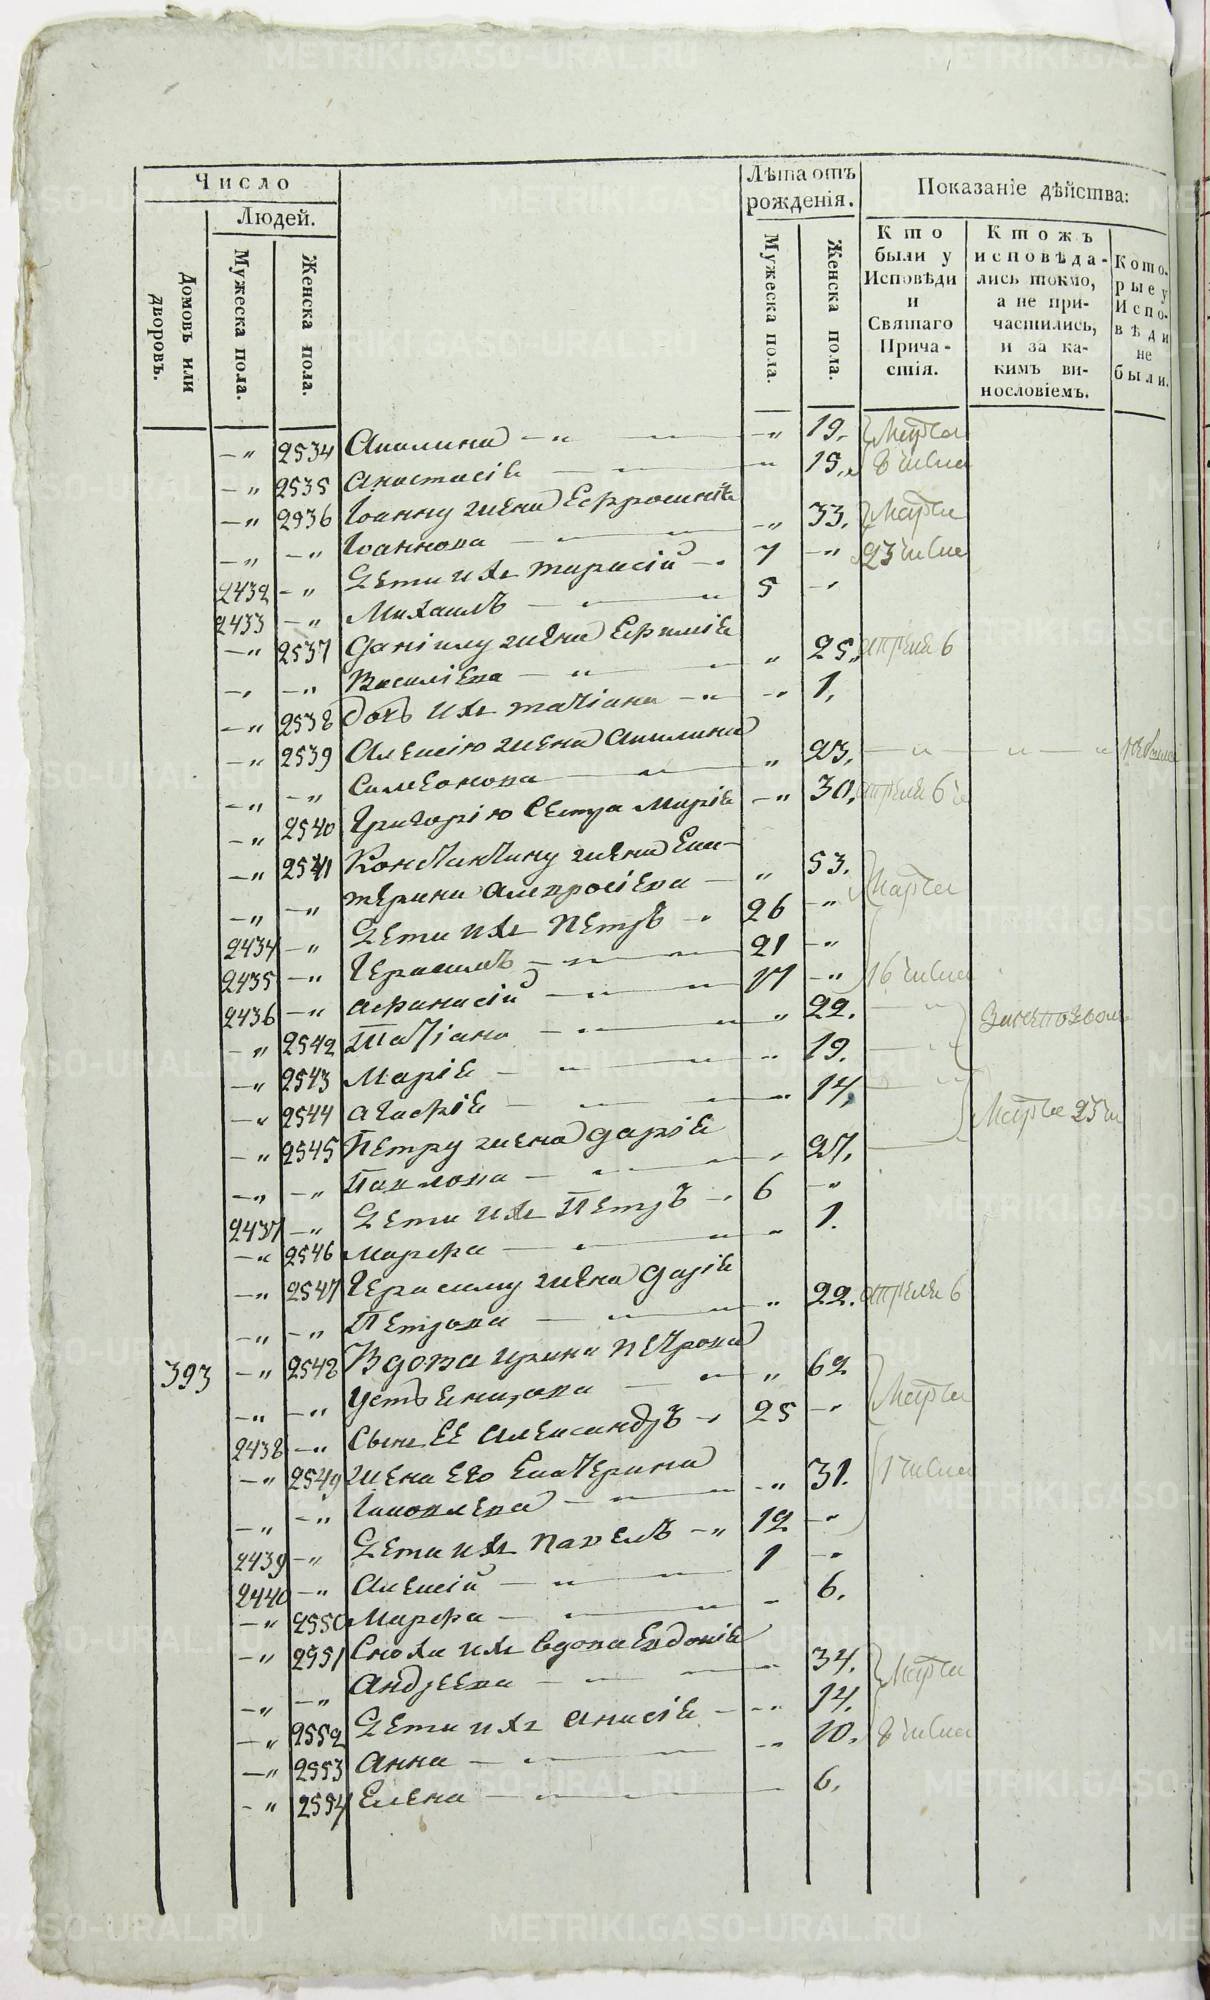 Число
Людей.
Домовъ или дворовъ.
Мужеска пола.
Женска пола.
Лѣта отъ рожденія.
Мужеска пола.
Женска пола.
Показаніе дѣйства:
Кто были у Исповѣди и Святаго Причастія.
Ктожъ исповѣдались токмо, а не причастились, и за какимъ винословіемъ.
Которые у Исповѣди не были.
—„ 2534 Акилина —„— —„ 19. Марта
—„ 2535 Анастасіѣ — „ 15. 8 числа
—„ 2536 Іоанну жена Ефросиніѣ
—„ —„ Іоаннова — —„ 33. Марта
2432 —„ Дѣти ихъ Тарасій —„ 7 —„ 23 числа
2433 —„ Михаилъ — 5 —„
—„ 2537 Даніилу жена Ефиміѣ
—„ —„ Василіева — „ 25. апреля 6
—„ 2538 дочь ихъ Татіана —„ —„ 1.
—„ 2539 Алексію жена Акилина
—„ —„ Симеонова — „ 23. — „ — „ — „
—„ 2540 Григорію сестра Маріѣ —„ 30. апреля 6
—„ 2541 Константину жена Ека-
—„ —„ терина Амвросіева — „ 53. Марта
2434 —„ Дѣти ихъ Петръ —„ 26 —„
2435 —„ Герасимъ — 21 —„
2436 —„ Афанасій — 17 —„ 16 числа
—„ 2542 Татіана — „ 22. — „
—„ 2543 Маріѣ — „ 19. — „
—„ 2544 Агафіѣ — „ 14. — „
—„ 2545 Петру жена Даріѣ Марта 23
—„ —„ Павлова — „ 27. —
2437 —„ Дѣти ихъ Петръ —„ 6 —„
—„ 2546 Марфа — „ 1.
—„ 2547 Герасиму жена Даріѣ
—„ —„ Петрова — „ 22. апреля 6
393 —„ 2548 Вдова Ирина Петрова
—„ —„ — „ 62 Марта
2438 —„ Сынъ ее Александръ —„ 25 —„
—„ 2549 Жена его Екатерина
—„ —„ Іаковлева — —„ 31. числа
2439 —„ Дѣти ихъ Павелъ —„ 12 —„
2440 —„ Алексій — 1 —„
—„ 2550 Марфа — „ 6.
—„ 2551 Сноха ихъ вдова Евдокіѣ
—„ —„ Андреева — „ 34. Марта
—„ 2552 Дѣти ихъ Анисіѣ —„ 14.
—„ 2553 Анна — „ 10. 8 числа
—„ 2554 Елена — „ 6.
METRIKI.GASO-URAL.RU